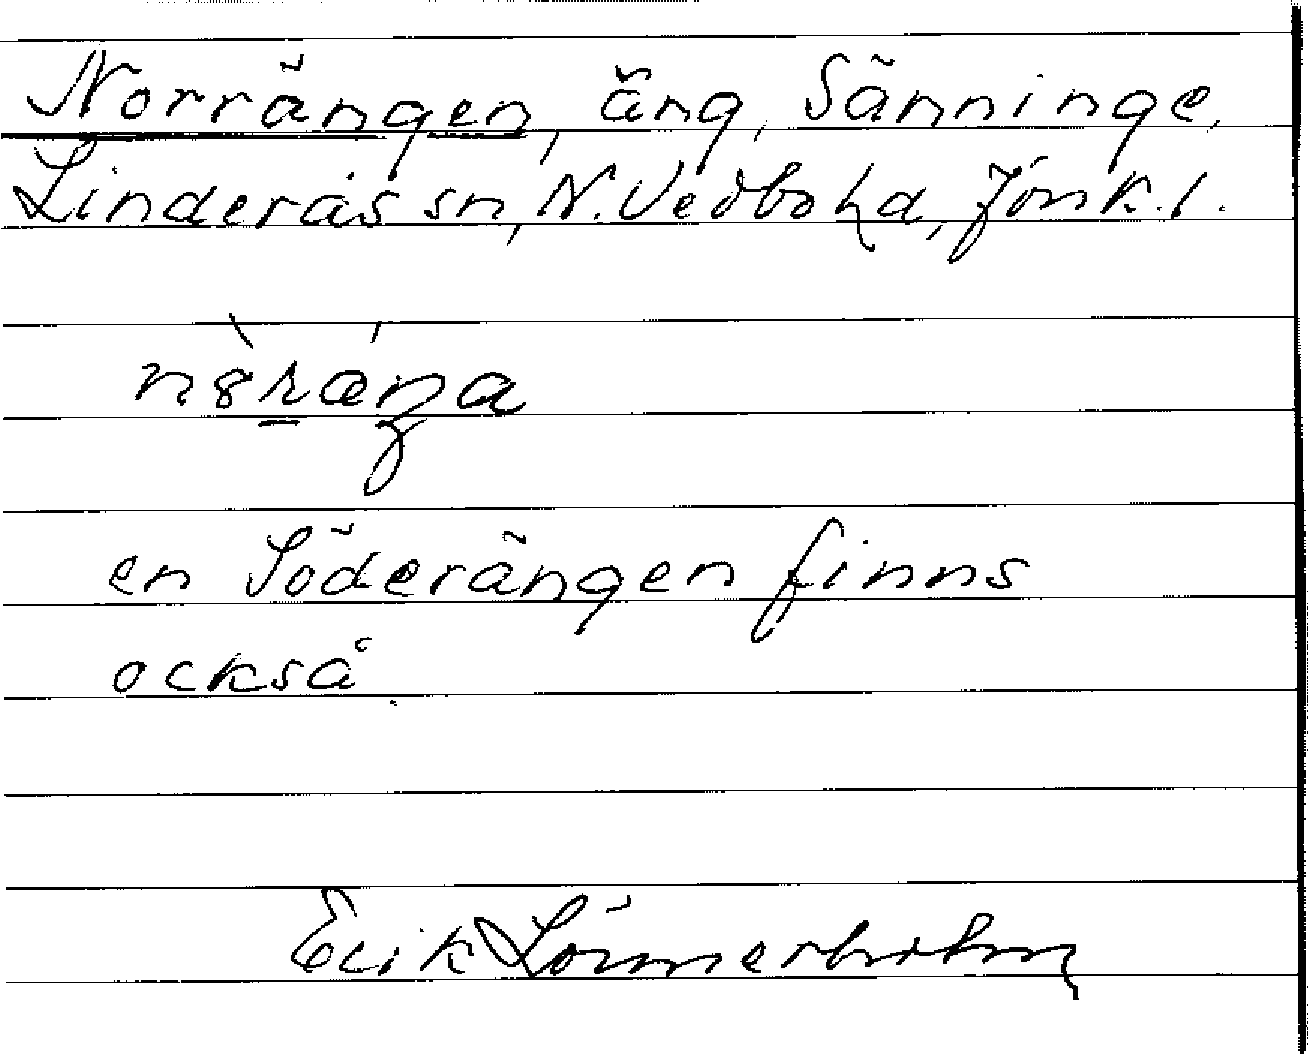 Norrängen, äng, Sänninge,
Linderås sn, N. Vedbo hd, Jönk. l.
en Söderängen finns
också.
Erik Lönnerholm